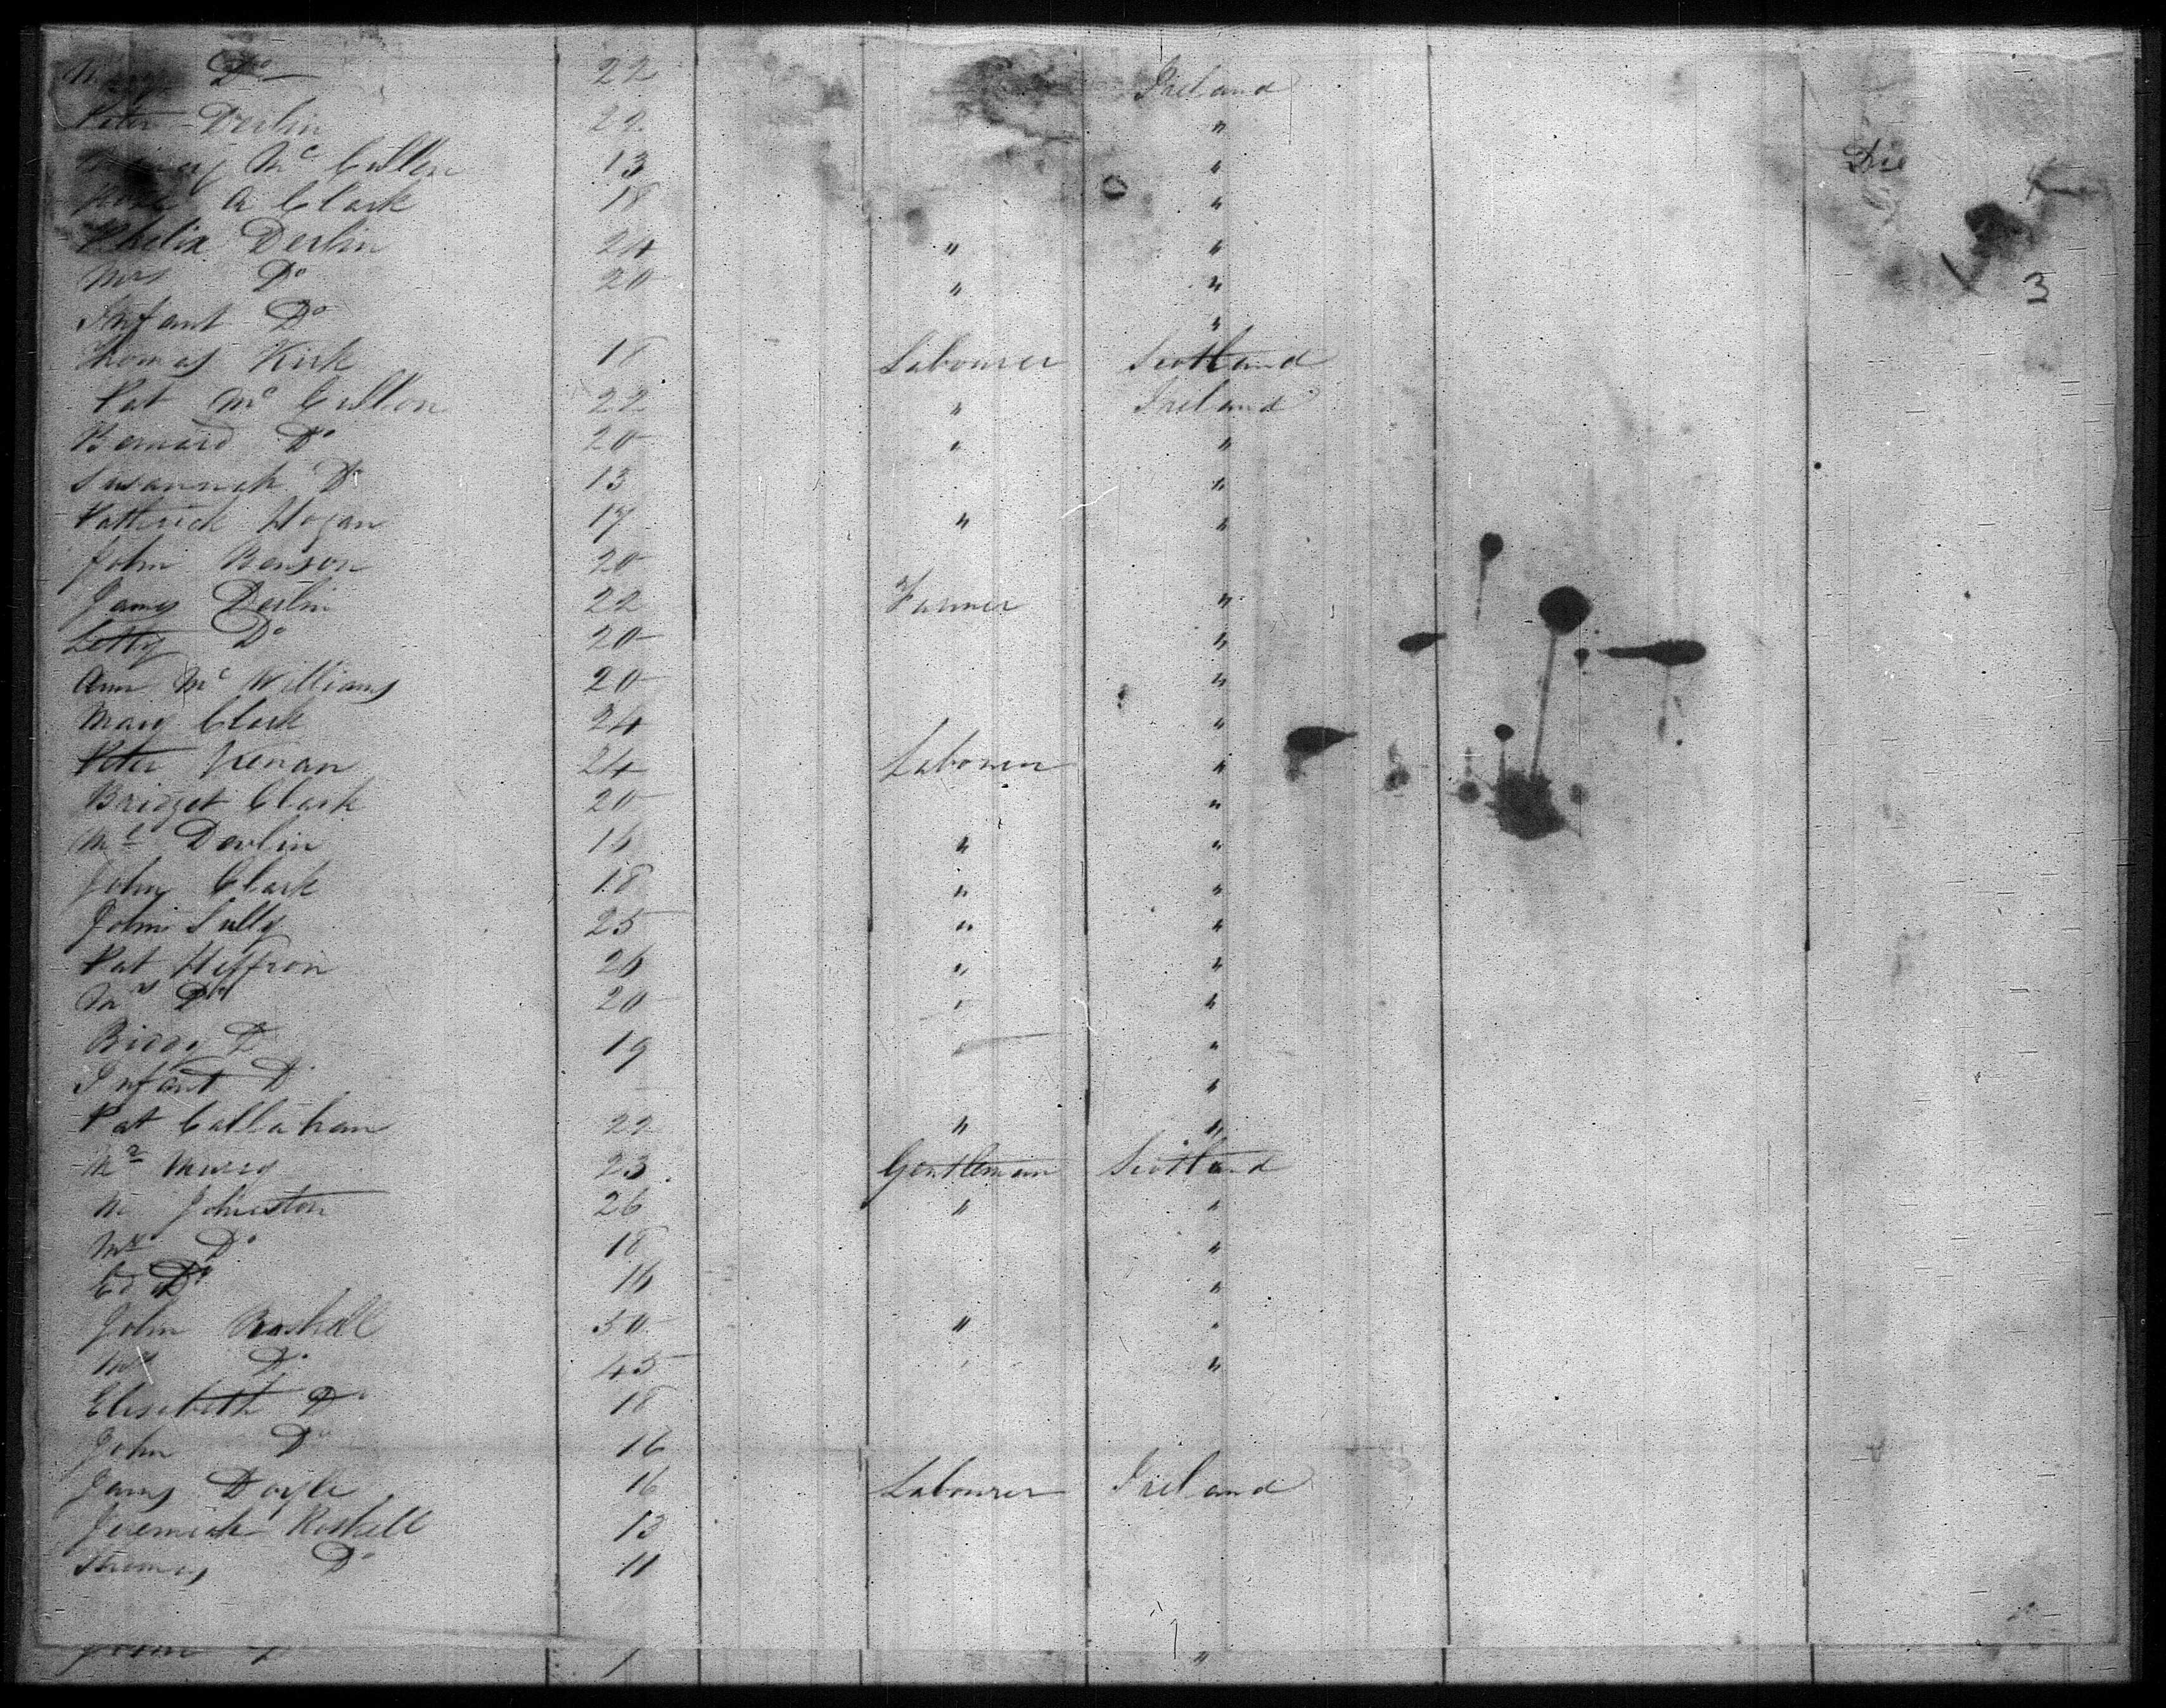 Do 22 Ireland
Peter Devlin 22 "
Mc Cullen 13 " Die
A Clark 18 "
Phelix Devlin 24 " "
Mrs Do 20 " " 3
Infant Do "
Thomas Kirk 18 Labourer Scotland
Pat Mc Cullon 22 " Ireland
Bernard Do 20 " "
Susannah Do 13 "
Pattrick Hogan 17 " "
John Benson 20
James Devlin 22 Farmer "
Letty Do 20 "
Ann Mc Williams 20 "
Mary Clark 24 "
Peter Keenan 24 Labourer "
Bridget Clark 20 "
Devlin 16 " "
John Clark 18 " "
John Sully 25 " "
Pat Heffron 26 " "
Mrs Do 20 " "
Biddy Do 19 " "
Infant Do "
Pat Callahan 22 " "
Mr Murry 23 Gentleman Scotland
M Johnston 26 " "
Mrs Do 18 "
Do 16 "
John Roskell 50 " "
Mrs Do 45 " "
Elisebeth Do 18
John Do 16
James Doyle 16 Labourer Ireland
Jeremiah Roskell 13
Thomas Do 11